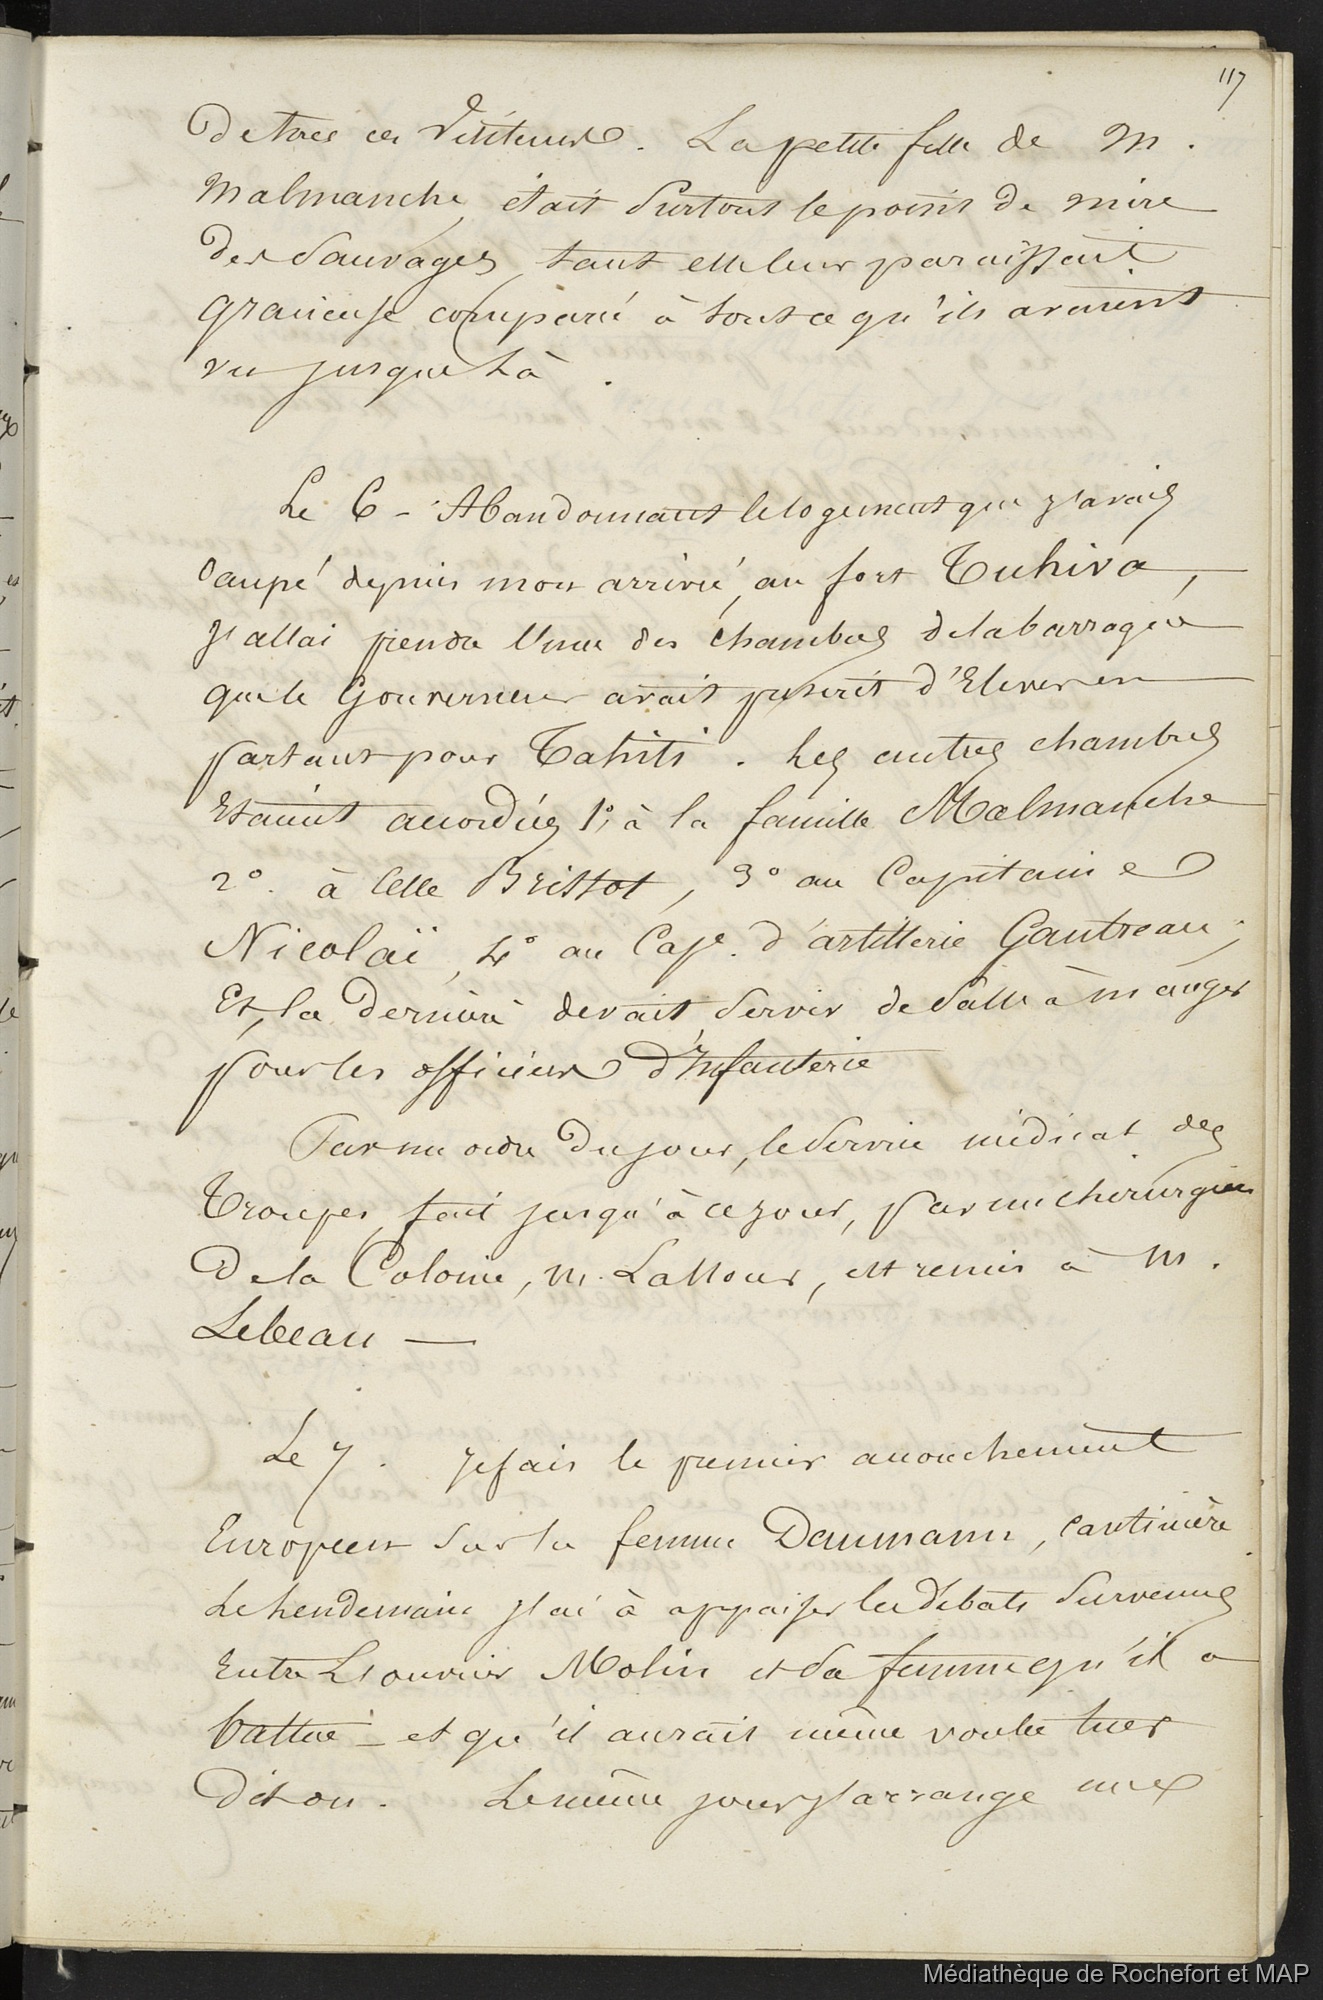 117
De tous ces Visiteurs. La petite fille de M.
Malmanche, était Surtout le point de mire
Des Sauvages, tant elle leur paraissait
gracieuse comparé à tout ce qu'ils avaient
vu jusque là.
Le 6 - Abandonnant le logement que j'avais
occupé depuis mon arrivée, au fort Tuhiva,
J'allai prendre l'une des chambres de la barraque
que le Gouverneur avait prescrit d'Elever en
partant pour Tahiti. Les autres chambres
Etaient accordées 1°; à la famille Malmanche
2°. à Celle Brissot, 3° au Capitaine
Nicolaï, 4° au Cape. d'artillerie Gautreau;
Et, la Dernière devait Servir de Salle à manger
pour les officiers d'Infanterie
Par un ordre Du jour, le Service médical des
Troupes, fait jusqu'à ce jour, par un chirurgien
De la Colonie, M. Lallour, est remis à M.
Lebeau —
Le 7. Je fais le premier accouchement
Européen Sur la femme Daumann, Cantinière
Le Lendemain J'ai à appaiser les débats Survenus
Entre L'ouvrier Molin et Sa femme qu'il a
battue - et qu'il aurait même voulu tuer
Dit on. Le même jour J'arrange une
Médiathèque de Rochefort et MAP